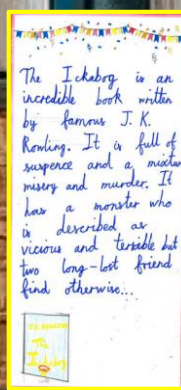 The Ickabog is an
incredible book written
by famous J. K.
Rowling. It is full of
suspence and a mixture
misery and murder. It
has a monster who
is described as
vicious and terrible but
two long-lost friend
find otherwise...
The
Ickabog